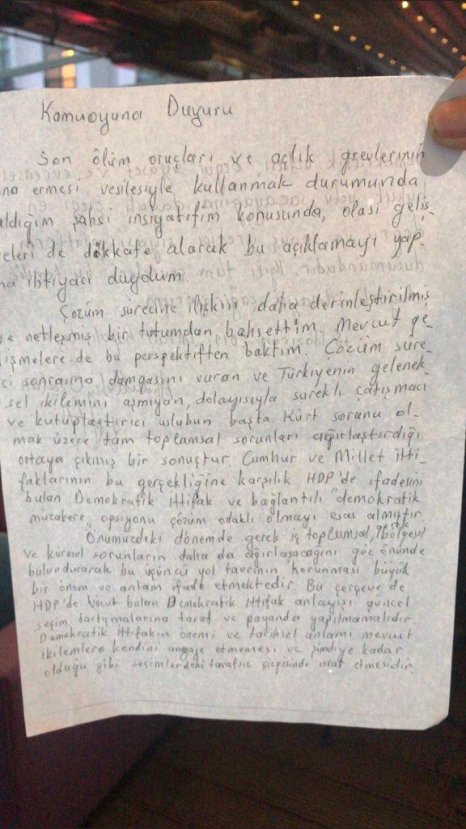 Kamuoyuna Duyuru
Son ölüm oruçları ve açlık grevlerinin
ona ermesi vesilesiyle kullanmak durumunda
aldığım şahsi insiyatifim konusunda, olası geliş
eleri de dikkate alarak bu açıklamayı yap-
ma ihtiyacı duydum.
Çözüm sürecine ilişkin daha derinleştirilmiş
ve netleşmiş bir tutumdan bahsettim. Mevcut ge-
lişmelere de bu perspektiften baktım. Çözüm süre-
ci sonrasına damgasını vuran ve Türkiyenin gelenek-
sel ikilemini aşmıyan, dolayısıyla sürekli çatışmacı
ve kutuplaştırıcı uslubun başta Kürt sorunu ol-
mak üzere tüm toplumsal sorunları ağırlaştırdığı
ortaya çıkmış bir sonuçtur. Cumhur ve Millet itti-
faklarının bu gerçekliğine karşılık HDP'de ifadesini
bulan Demokratik ittifak ve bağlantılı "demokratik
müzakere" opsiyonu çözüm odaklı olmayı esas almıştır.
Önümüzdeki dönemde gerek iç toplumsal, bölgesel
ve küresel sorunların daha da ağırlaşacağını göz önünde
bulundurarak bu üçüncü yol tavrının korunması büyük
bir önem ve anlam ifade etmektedir. Bu çerçeve de
HDP'de vücut bulan Demokratik ittifak anlayışı güncel
seçim tartışmalarına taraf ve payanda yapılmamalıdır.
Demokratik ittifakın önemi ve tarihsel anlamı mevcut
ikilemlere kendini angaje etmemesi ve şimdiye kadar
olduğu gibi seçimlerdeki tarafsız çizgisinde ısrar etmesidir.